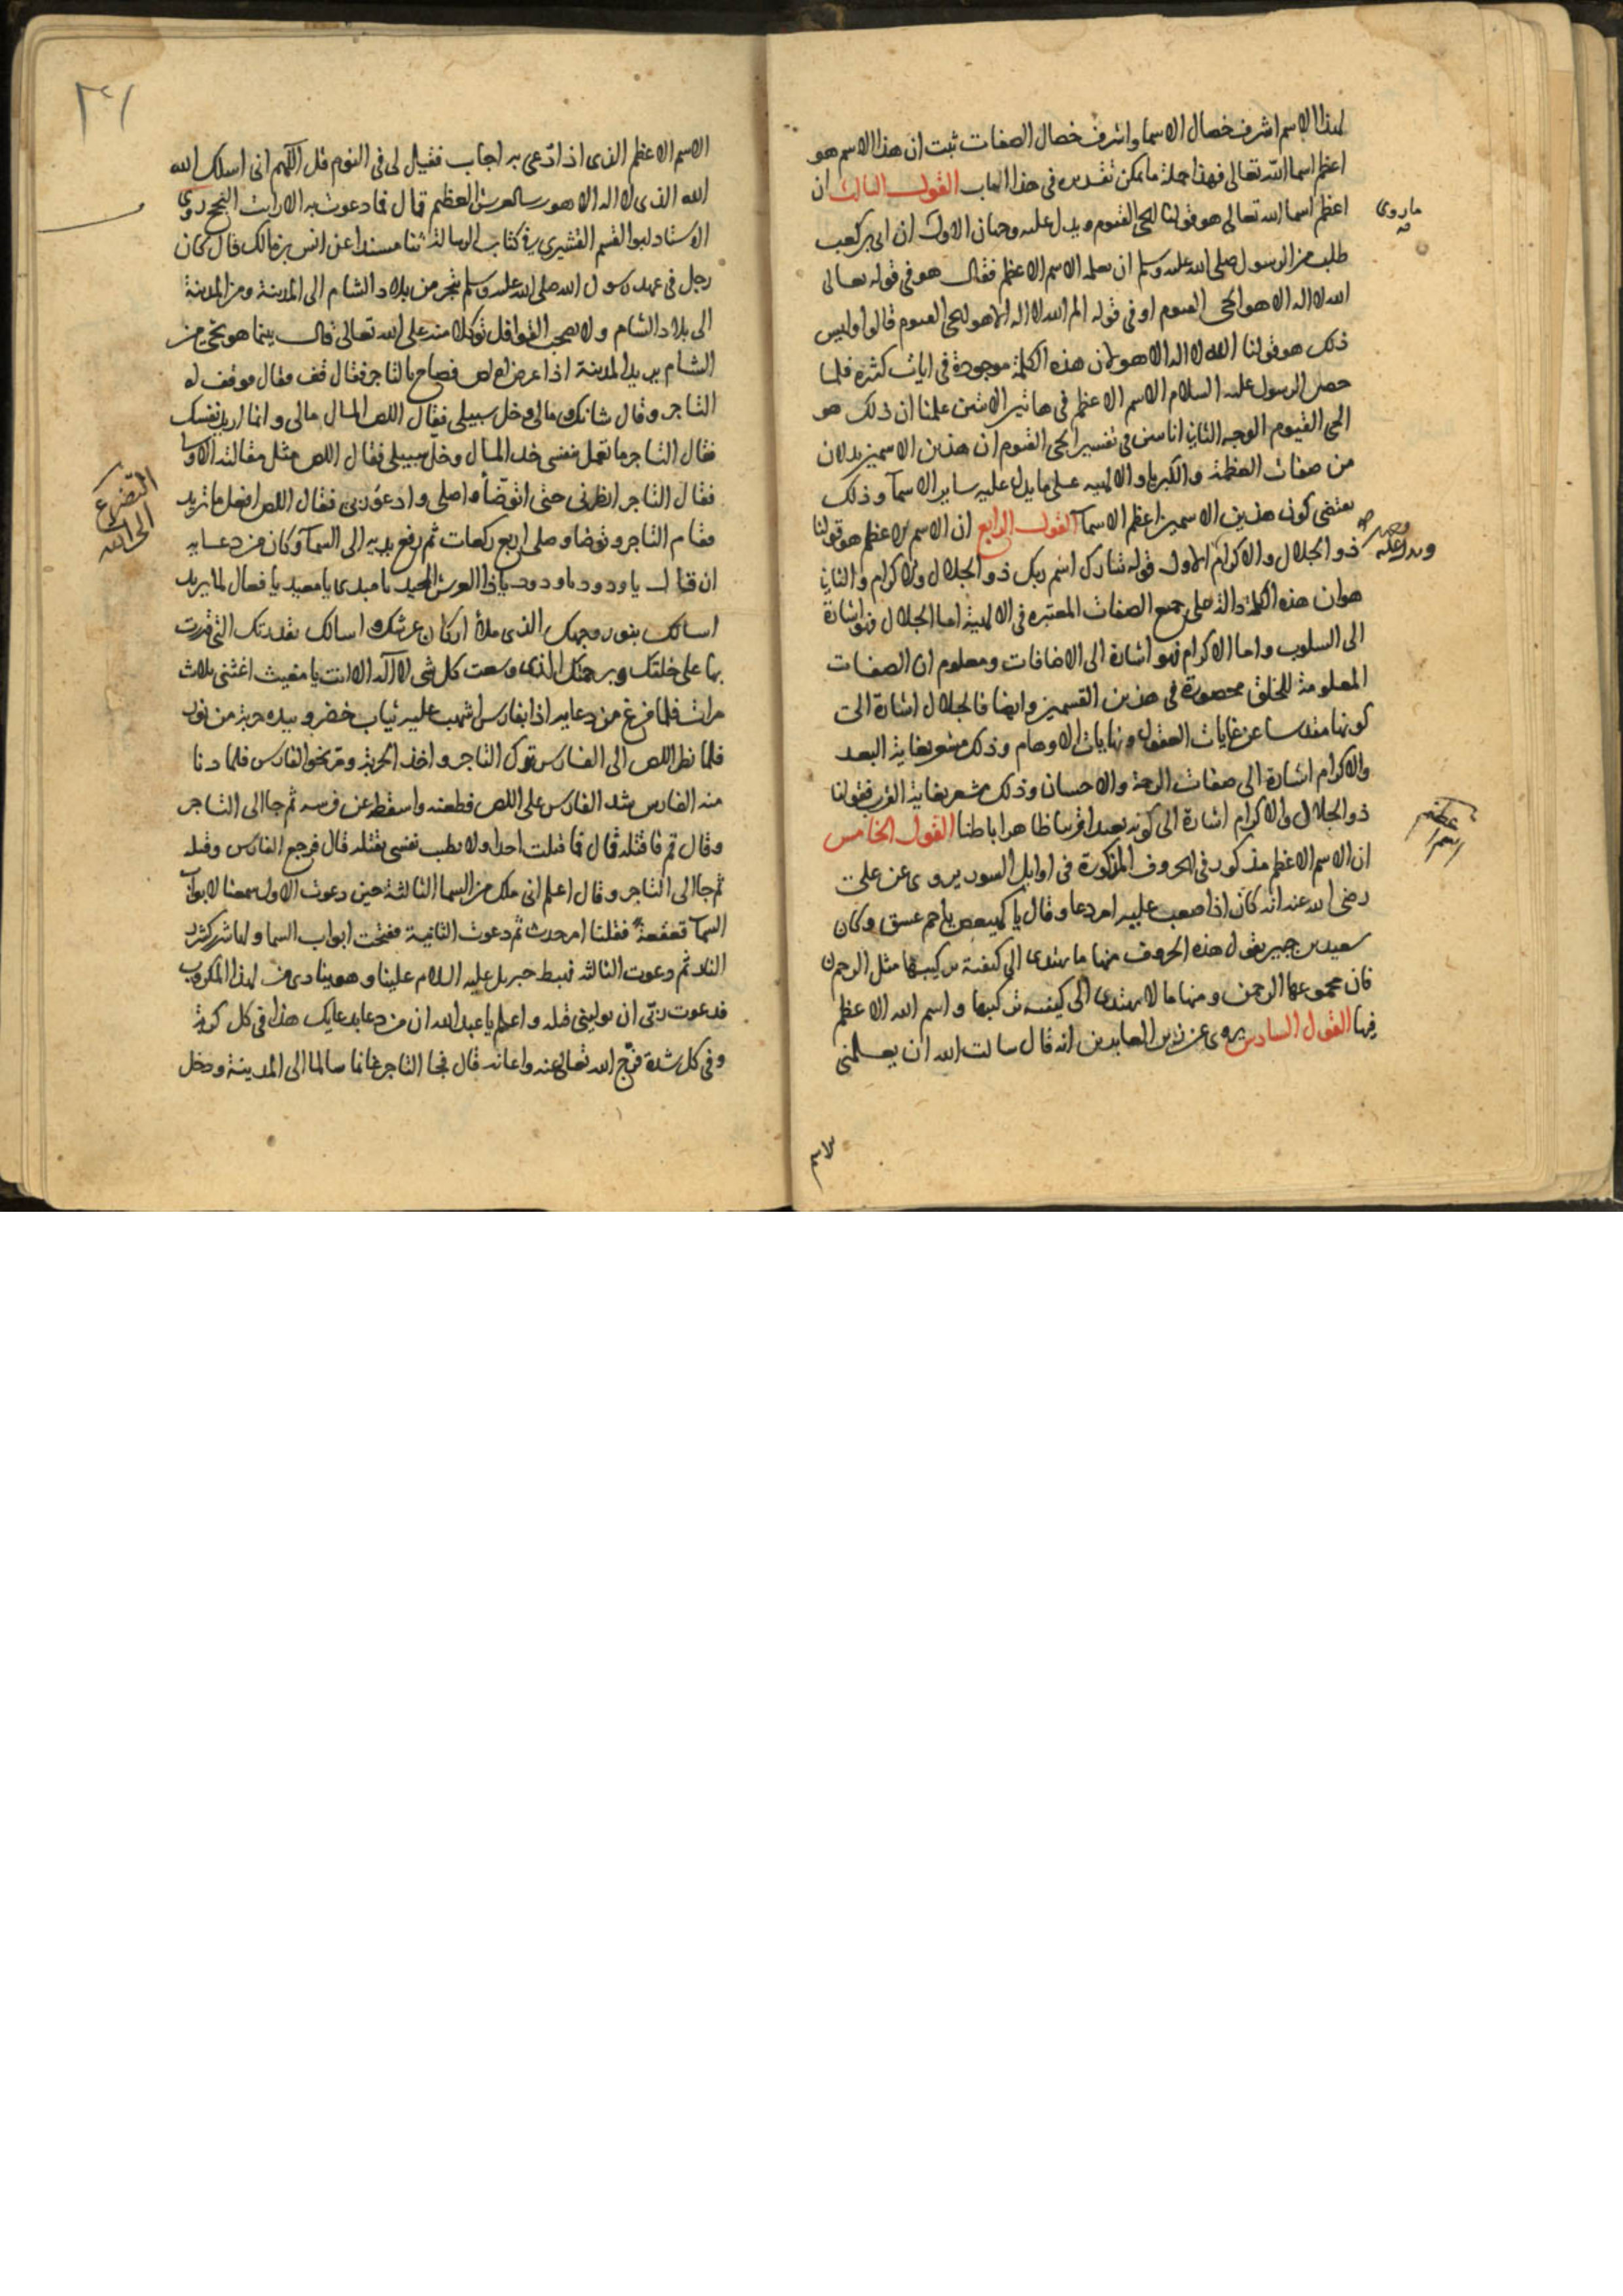 لهذا الاسم اشرف خصال الاسما واشرف خصال الصفات ثبت ان هذا الاسم هو
اعظم اسما الله تعالى فهذا جملة ما يمكن تقديره فى هذا الباب القول الثالث ان
اعظم اسما الله تعالى هو قولنا الحى القيوم ويدل عليه وجهان الاول ان ابى بن كعب
طلب من الرسول صلى الله عليه وسلم ان يعلمه الاسم الاعظم فقال هو فى قوله تعالى
الله لا اله الا هو الحى القيوم او فى قوله الم الله لا اله الا هو الحى القيوم قالوا وليس
ذلك هو قولنا الله لا اله الا هو لان هذه الكلمة موجودة فى ايات كثيره فلما
حصر الرسول عليه السلام الاسم الاعظم فى هاتين الايتين علمنا ان ذلك هو
الحى القيوم الوجه الثانى انا سنبين فى تفسير الحى القيوم ان هذين الاسمين يدلان
من صفات العظمة والكبريا والالهيه على ما يدل عليه ساير الاسمآ وذلك
يقتضى كون هذين الاسمين اعظم الاسمآ القول الرابع ان الاسم الاعظم هو قولنا
ذو الجلال والاكرام الاول قوله تبارك اسم ربك ذو الجلال والاكرام والثانى
هو ان هذه الكلمة دالة على جميع الصفات المعتبره فى الالهية اما الجلال فهو اشارة
الى السلوب واما الاكرام فهو اشارة الى الاضافات ومعلوم ان الصفات
المعلومة للخلق محصورة فى هذين القسمين وايضا فالجلال اشارة الى
كونها مقدسا عن غايات العقول ونهايات الاوهام وذلك مشعر بغاية البعد
والاكرام اشارة الى صفات الرحمة والاحسان وذلك مشعر بغاية القرب فقولنا
ذو الجلال والاكرام اشارة الى كونه بعيدا قريبا ظاهرا باطنا القول الخامس
ان الاسم الاعظم مذكور فى الحروف المذكورة فى اوايل السور يروى عن على
رضى الله عنه انه كان اذا صعب عليه امر دعا وقال يا كهيعص يا حم عسق وكان
سعيد بن جبير يقول هذه الحروف منها ما يهتدى الى كيفية تركيبها مثل الر حم ن
فان مجموعها الرحمن ومنها ما لا يهتدى الى كيفية تركيبها واسم الله الاعظم
فيها القول السادس يروى عن زين العابدين انه قال سالت الله ان يعلمنى
ما روى
الاسم الاعظم الذى اذا دعى به اجاب فقيل لى فى النوم قل اللهم انى اسلك الله
الله الذى لا اله الا هو رب العرش العظيم قال فما دعوت به الا رايت النجح روى
الاستاد ابو القسم القشيرى فى كتاب الرسالة ثنا مسندا عن انس بن مالك قال كان
رجل فى عهد رسول الله صلى الله عليه وسلم يتجر من بلاد الشام الى المدينة ومن المدينة
الى بلاد الشام ولا يصحب القوافل توكلا منه على الله تعالى قال بينما هو يجى من
الشام يريد المدينة اذا عرض له لص فصاح بالتاجر فقال قف فقال فوقف له
التاجر وقال شانك مالى وخل سبيلى فقال اللص المال مالى وانما اريد نفسك
فقال التاجر ما تعمل بنفسى خذ المال وخل سبيلى فقال اللص مثل مقالته الاولى
فقال التاجر انظرنى حتى اتوضأ واصلى وادعو ربى فقال اللص افعل ما تريد
فقام التاجر وتوضا وصلى اربع ركعات ثم رفع يديه الى السمآ وكان من دعايه
ان قال يا ودود يا ودود يا ذا العرش المجيد يا مبدى يا معيد يا فعال لما يريد
اسالك بنور وجهك الذى ملأ اركان عرشك واسالك بقدرتك التى قدرت
بها على خلقك وبرحمتك الذى وسعت كل شى لا اله الا انت يا مغيث اغثنى ثلاث
مرات فلما فرغ من دعايه اذا بفارس اشهب عليه ثياب خضر وبيده حربة من نور
فلما نظر اللص الى الفارس ترك التاجر واخذ الحربة ومر نحو الفارس فلما دنا
منه الفارس شد الفارس على اللص فطعنه واسقطه عن فرسه ثم جا الى التاجر
وقال قم فاقتله قال فما قتلت احدا ولا تطيب نفسى بقتله قال فرجع الفارس وقتله
ثم جا الى التاجر وقال اعلم انى ملك من السما الثالثة حين دعوت الاول سمعنا لابواب
السمآ قعقعة فقلنا امر حدث ثم دعوت الثانية ففتحت ابواب السما ولها شرر كشرر
النار ثم دعوت الثالثه فهبط جبريل عليه السلام علينا وهو ينادى من لهذا المكروب
فدعوت ربى ان يولينى قتله واعلم يا عبد الله ان من دعا بدعايك هذا فى كل كربة
وفى كل شدة فرج الله تعالى عنه واعانه قال فجا التاجر غانما سالما الى المدينة ودخل
التضرع
الى الله